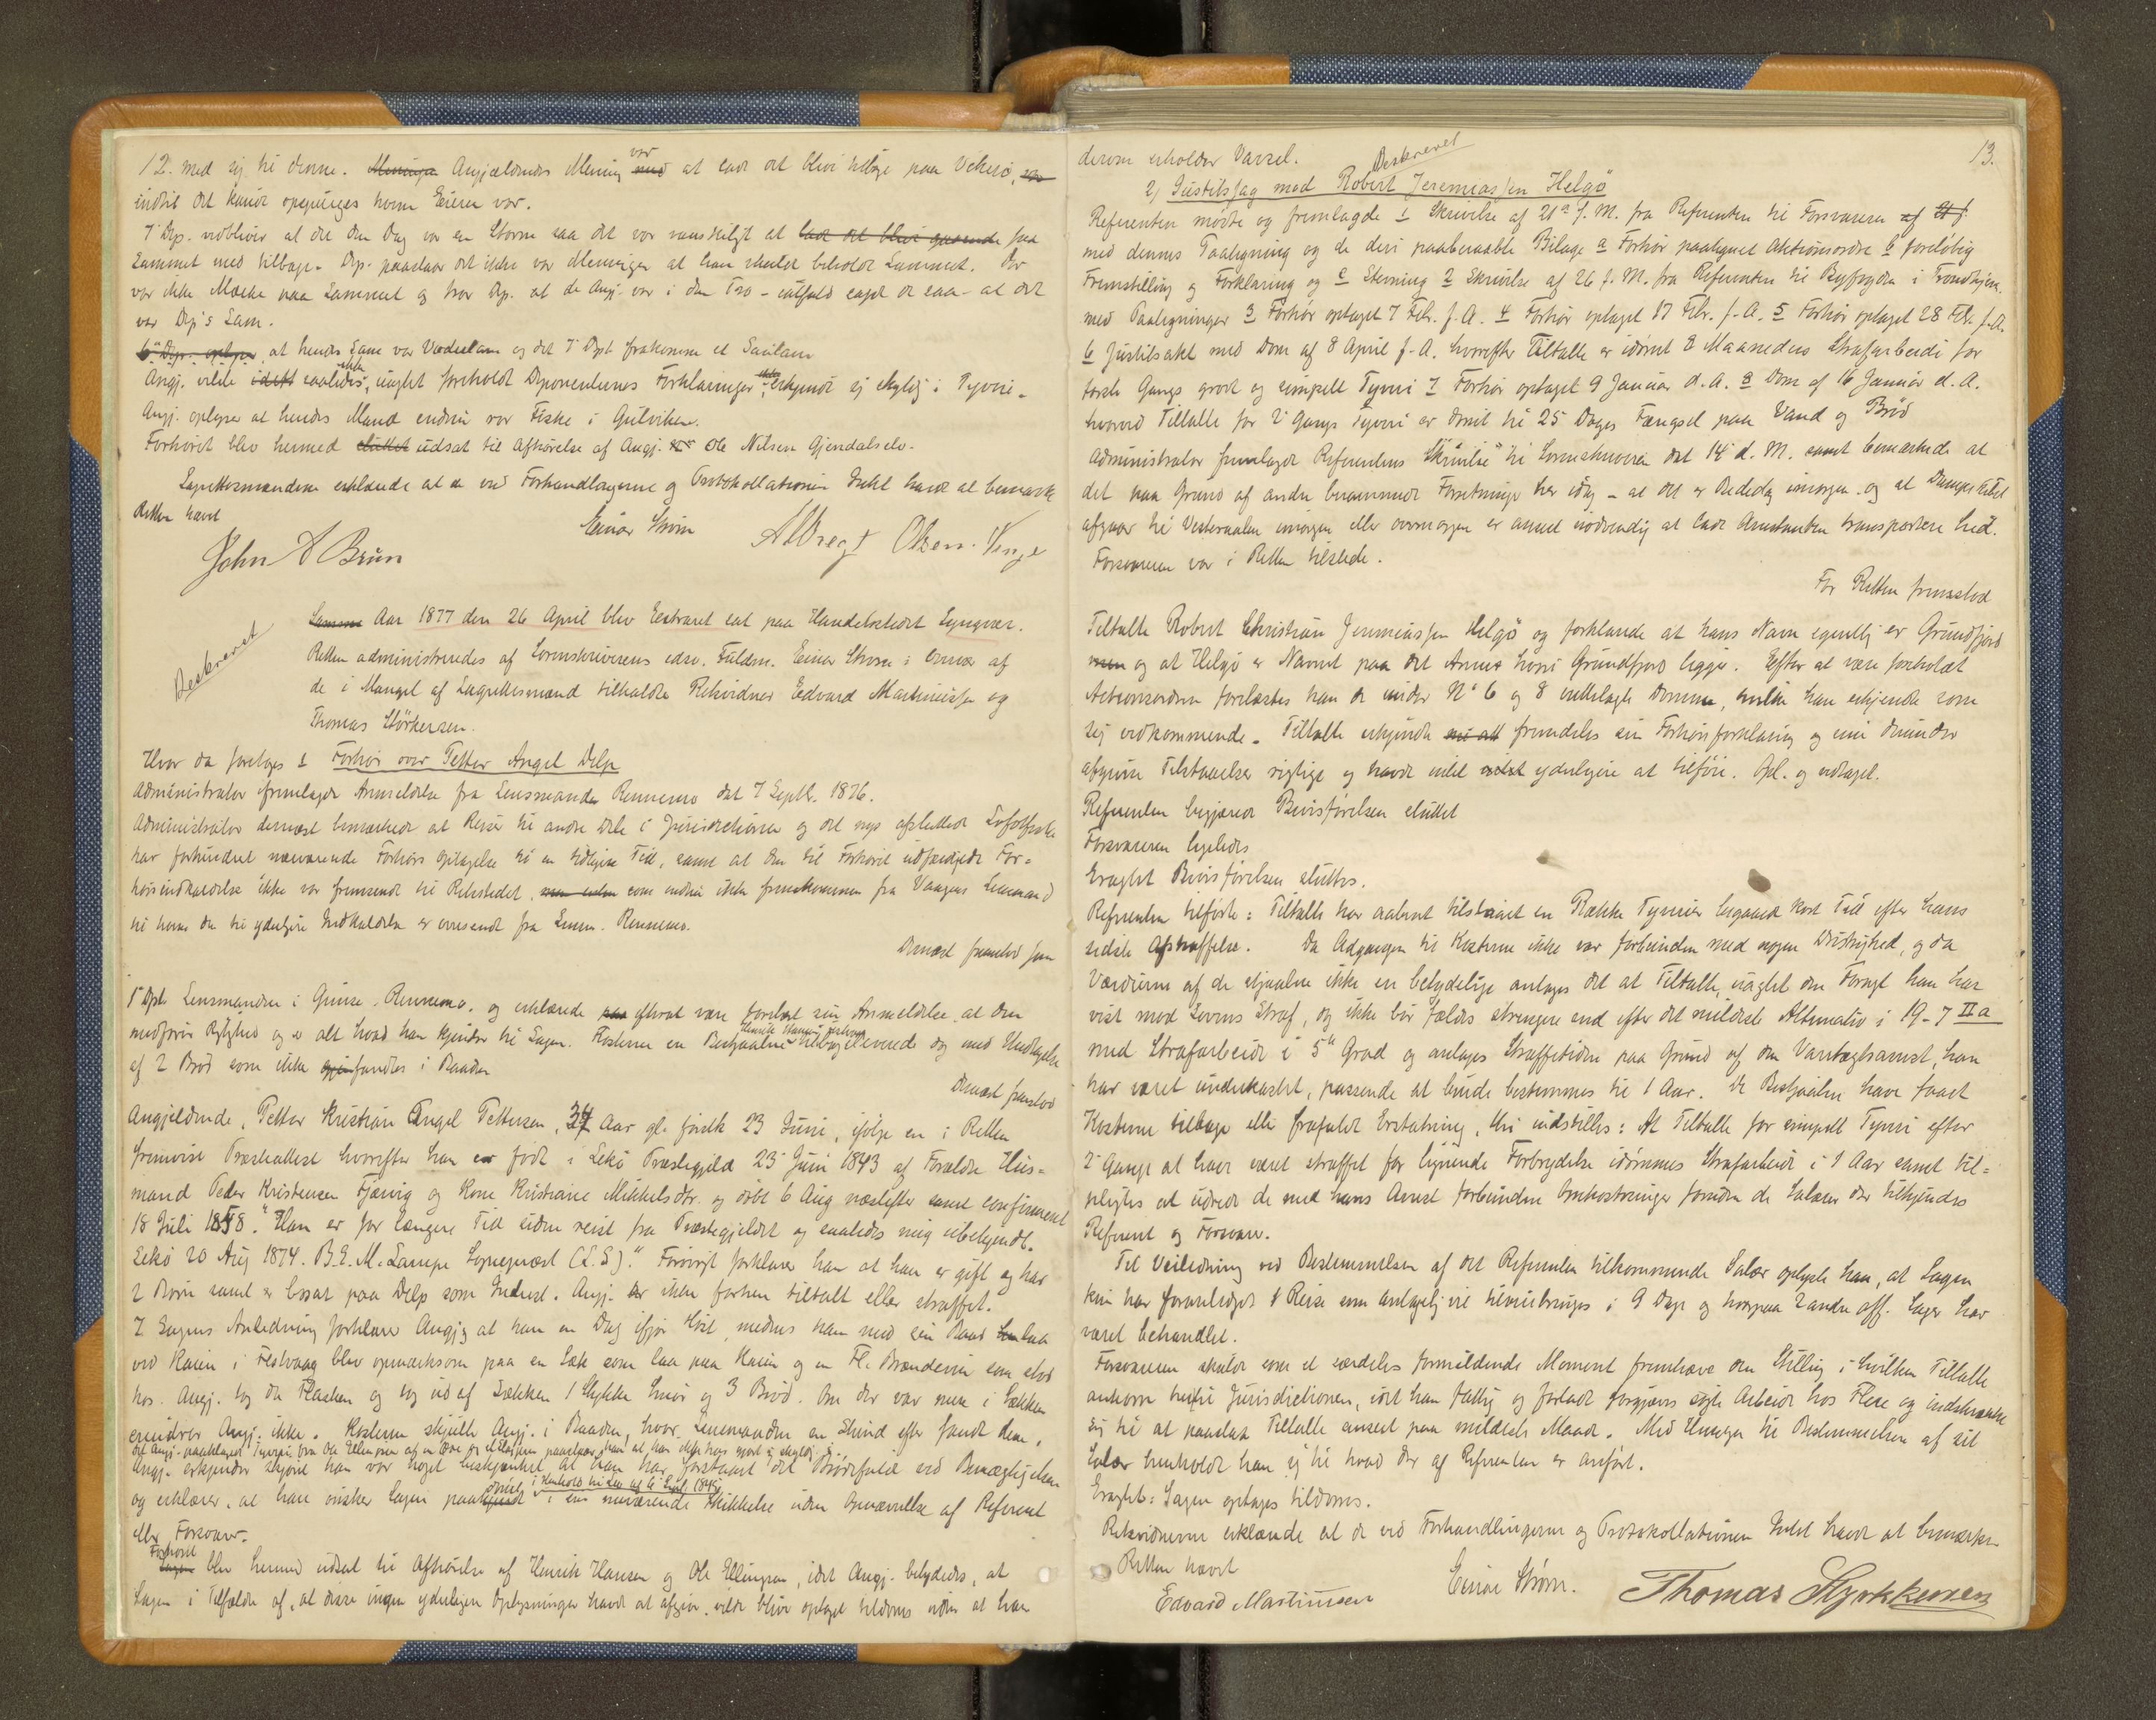 12. med sig til denne. Meningen Angjældendes Mening var med at lade det blive tilbage paa Vekesø,
indtil det kunde opspørges hvem Eieren var.
7' Dep. vedbliver at det den Dag var en Storm saa det var vanskeligt at lade det blive gaaende faa
Lammet med tilbage. Dep. paastaar det ikke var Meningen at han skulde beholdt Lammet. Der
var ikke Mærke paa Lammet og tror Dep. at de Angj. var i den Tro - ialfald sagde de saa - at det
var Dep's Lam.
6te Dep. oplyser, at hendes Lam var Væderlam og det 7' Dpt frakomne et Saulam
Angj. vilde saaledes, uagtet foreholdt Deponenternes Forklaringer ikke erkjende sig skyldig i Tyveri.
Angj. oplyser at hendes Mand endnu var Fiske i Gulviken.
Forhøret blev hermed sluttet udsat til Afhørelse af Angj. Ole Nilsen Gjendalselv.
Lagrettesmændene erklærede at de ved Forhandlingerne og Protokollationen Intet havde at bemærke
Retten hævet
John A Brun Einar Strøm Albregt Olsen Vinge
Beskrevet
Samme Aar 1877 den 26 April blev Extraret sat paa Handelsstedet Lyngvær.
Retten administreredes af Sorenskriverens edsv. Fuldm. Einar Strøm i Nærvær af
de i Mangel af Lagrettesmænd tilkaldte Retsvidner Edvard Martinussen og
Thomas Størkersen.
Hvor da foretoges 1 Forhør over Petter Angel Delp
Administrator fremlagde Anmeldelse fra Lensmanden Rennemo dat 7 Septbr. 1876.
Administrator dernæst bemærkede at Reise til andre Dele i Jurisdictionen og det nys afsluttede Lofotfiske
har forhindret nærværende Forhørs Optagelse til en tidligere Tid, samt at den til Forhøret udfærdigede For-
hørsindkaldelse ikke var fremsendt til Retsstedet, som endnu ikke fremkommen fra Vaagens Lensmand
til hvem den til yderligere Indkaldelse er oversendt fra Lensm. Rennemo.
Dernæst fremstod som
1' Dpt. Lensmanden i Gimsø, Rennemo, og erklærede efterat være forelæst sin Anmeldelse at den
medfører Rigtighed og er alt hvad han kjender til Sagen. Kosterne ere Bestjaalne Henrik Hansen tilbageleverede og med Undtagelse
af 2 Brød som ikke fandtes i Baaden
Dernæst fremstod
Angjeldende, Petter Kristian Angel Pettersen, 34 Aar gl. fyldt 23 Juni, ifølge en i Retten
fremvist Præsteattest hvorefter han er født i Lekø Præstegjeld 23' Juni 1843 af Forældre Hus-
mand Peder Kristensen Fjærvig og Kone Kristiane Mikkelsdtr. og døbt 6 Aug næstefter samt confirmeret
18 Juli 1858." Han er for længere Tid siden reist fra Præstegjeldet og saaledes mig ubekjendt.
Lekø 20 Aug 1874. B.E.M. Lampe Sognepræst (L.S)". Forøvrigt forklarer han at han er gift og har
2 Børn samt er bosat paa Delp som Inderst. Angj. er ikke forhen tiltalt eller straffet.
I Sagens Anledning forklarer Angj. at han en Dag ifjor Høst, medens han med sin Baad laa
ved Kaien i Festvaag blev opmærksom paa en Sæk som laa paa Kaien og en Fl. Brændevin som stod
hos. Angj. tog da Flasken og tog ud af Sækken 1 Stykke Smør og 3 Brød. Om der var mere i Sækken
erindrer Angj. ikke. Kosterne skjulte Angj. i Baaden, hvor Lensmanden en Stund efter fandt dem.
Angj. erkjender skjønt han var noget beskjænket at han har forstaaet det Brødefulde ved Bemægtigelsen
og erklærer, at han ønsker Sagen paadømt i Henhold til Lov af 6' Septb 1845 i sin nuværende Skikkelse uden Opnævnelse af Referent
eller Forsvarer.
Forhøret blev hermed udsat til Afhørelse af Henrik Hansen og Ole Ellingsen, idet Angj. betydedes, at
Sagen i Tilfælde af, at disse ingen yderligere Oplysninger havde at afgive, vilde blive optaget tildoms uden at han
13.
derom erholder Varsel.
Beskrevet
2) Justitssag mod Robert Jeremiassen Helgø
Referenten mødte og fremlagde 1 Skrivelse af 21de f. M. fra Referenten til Forsvareren
med dennes Paategning og de deri paaberaabte Bilage a Forhør paategnet Aktionsordre b foreløbig
Fremstilling og Forklaring og c Stevning 2 Skrivelse af 26 f. M. fra Referenten til Byfogden i Trondhjem
med Paategninger 3 Forhør optaget 7 Febr. f. A. 4 Forhør optaget 17 Febr. f. A. 5 Forhør optaget 28 Febr. f. A.
6 Justitsakt med Dom af 8 April f. A. hvorefter Tiltalte er idømt 2 Maaneders Strafarbeide for
første Gangs grovt og simpelt Tyveri 7 Forhør optaget 9 Januar d. A. 8 Dom af 16 Januar d. A.
hvorved Tiltalte for 2' Gangs Tyveri er dømt til 25 Dages Fængsel paa Vand og Brød
Administrator fremlagde Referentens Skrivelse til Sorenskriveren dat 14' d. M. samt bemærkede at
det paa Grund af andre berammede Forretninger her idag - at det er Bededag imorgen og at Dampskibet
afgaar til Vesteraalen imorgen eller overmorgen er anseet nødvendig at lade Arrestanten transportere hid.
Forsvareren var i Retten tilstede.
For Retten fremstod
Tiltalte Robert Christian Jeremiassen Helgø og forklarede at hans Navn egentlig er Grundfjord
og at Helgø er Navnet paa det Annex hvori Grundfjord ligger. Efter at være foreholdt
Actionsordren forelæstes han de under No 6 og 8 indtelagte Domme, hvilke han erkjendte som
sig vedkommende. Tiltalte erkjendte fremdeles sin Forhørsforklaring og sine derunder
afgivne Tilstaaelser rigtige og havde intet yderligere at tilføie. Opl. og vedtaget.
Referenten begjærede Bevisførelsen sluttet
Forsvareren ligeledes
Eragtet Bevisførelsen sluttes.
Referenten tilførte: Tiltalte har aabent tilstaaet en Række Tyverier begaaede kort Tid efter hans
sidste Afstraffelse. Da Adgangen til Kosterne ikke var forbunden med nogen Dristighed, og da
Værdierne af de stjaalne ikke ere betydelige antages det at Tiltalte, uagtet den Foragt han har
vist mod Lovens Straf, og ikke bør fældes strengere end efter det mildeste Alternativ i 19-7 IIa
med Strafarbeide i 5te Grad og antages Straffetiden paa Grund af den Varetægtsarrest, han
har været underkastet, passende at burde bestemmes til 1 Aar. De Bestjaalne have faaet
Kosterne tilbage eller frafaldt Erstatning, thi indstilles: At Tiltalte for simpelt Tyveri efter
2' Gange at have været straffet for lignende Forbrydelse idømmes Strafarbeide i 1 Aar samt til-
pligtes at udrede de med hans Arrest forbundne Omkostninger foruden de Salærer der tilkjendes
Referent og Forsvarer.
Til Veiledning ved Bestemmelsen af det Referenten tilkommende Salær oplyste han, at Sagen
kun har foranlediget 1 Reise som antagelig vil tilendebringes i 9 Dage og hvorpaa 2 andre off. Sager har
været behandlet.
Forsvareren skulde som et særdeles formildende Moment fremhæve den Stilling i hvilken Tiltalte
ankom hertil Jurisdictionen, idet han fattig og forladt forgjæves søgte Arbeide hos Flere og indskrænke
sig til at paastaa Tiltalte anseet paa mildeste Maade. Med Hensyn til Bestemmelsen af sit
Salær henholdt han sig til hvad der af Referenten er anført.
Eragtet: Sagen optages tildoms.
Retsvidnerne erklærede at de ved Forhandlingerne og Protokollationen Intet havde at bemærke.
Retten hævet
Edvard Martinusen Einar Strøm. Thomas Styrkkersen